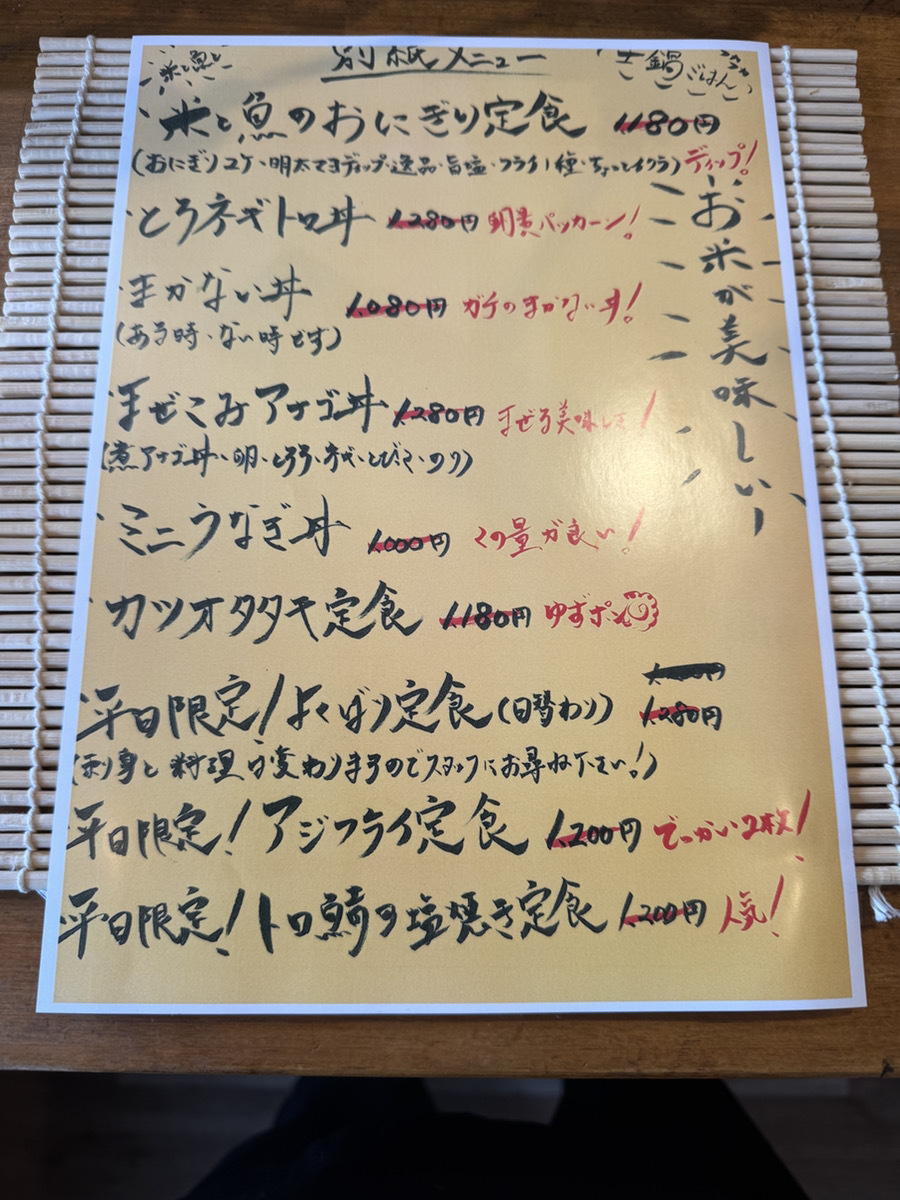 米と魚と
別紙メニュー
土鍋ごはん
米と魚のおにぎり定食 1180円
(おにぎり2ケ・明太マヨディップ・逸品・旨塩・フライ1種・ちょっとイクラ) ディップ!
お米が美味しい!
とろネギトロ丼 1.280円 卵黄パッカーン!
まかない丼 1.080円 ガチのまかない丼!
(ある時・ない時です)
まぜこみアナゴ丼 1.280円 まぜる美味しさ!
(煮アナゴ丼・卵・とろろ・ネギ・とびこ・のり)
ミニうなぎ丼 1.000円 この量が良い!
カツオタタキ定食 1.180円 ゆずポン
平日限定!よくばり定食(日替わり) 1.280円
(刺身と料理日変わりますのでスタッフにお尋ね下さい!)
平日限定!アジフライ定食 1.200円 でっかい2枚!
平日限定!トロ鯖の塩焼き定食 1.200円 人気!